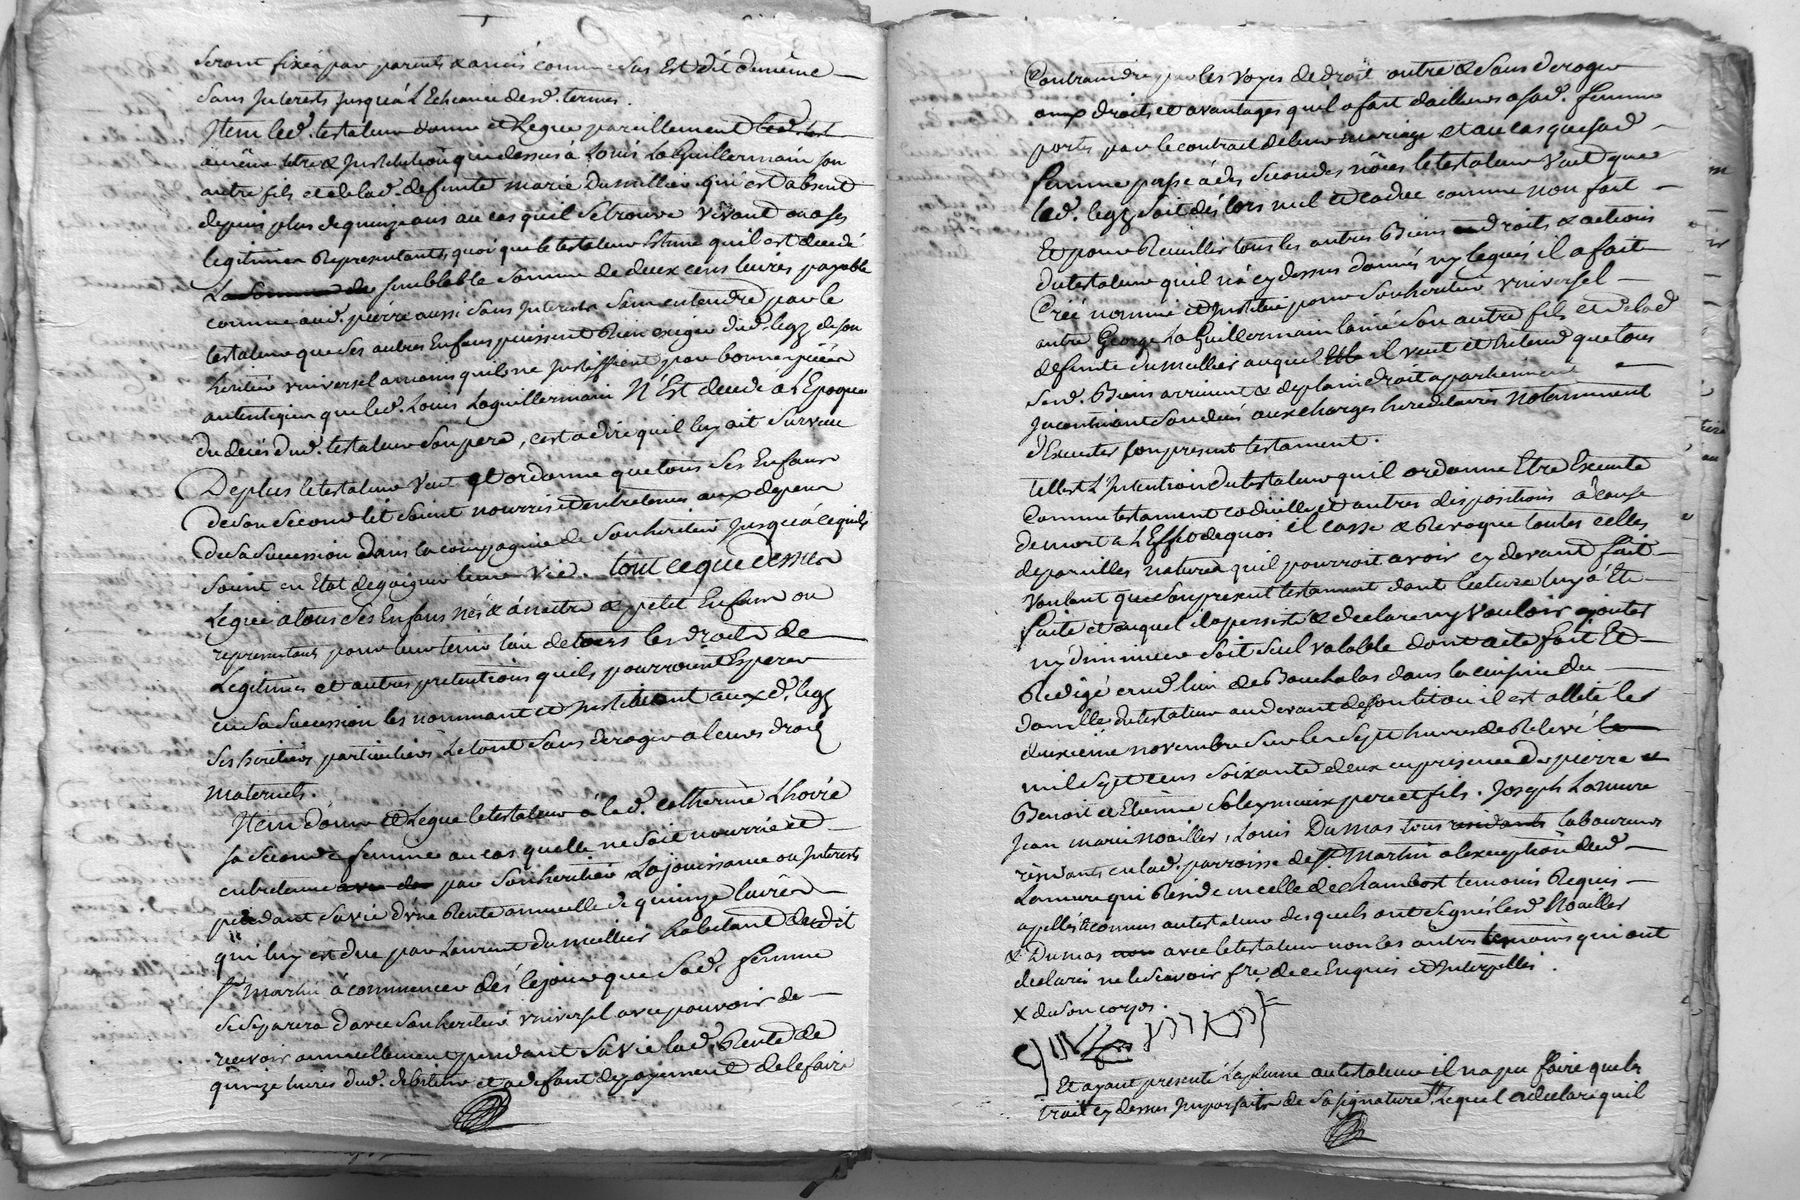 seront fixés par parents & amis comme sus Est dit de même
sans Interests jusqu'a L'Echeance desd. termes.
Item led. testateur donne et Legue pareillement
a même titre & Institution que dessus à Louis LaGuillermain son
autre fils et de lad. defunte marie Dumillier qui est absent
depuis plus de quinze ans au cas quil se trouve vivant ou a ses
legitimes Representants, quoique le testateur Estime quil est decedé
La somme de semblable somme de deux cens livres payable
comme aud. pierre aussi sans Interests sans entendre par le
testateur que ses autres Enfans puissent Rien exiger dud. legz de son
heritier universel a moins quils ne justiffient par bonnes pieces
autentiques que led. Louis Laguillermain N'Est decedé à L'Epoque
du decés dud. testateur son pere, c'est a dire quil luy ait survecu
De plus le testateur Veut et ordonne que tous ses Enfans
de son second lit soient nourris et entretenus aux depens
de sa succession dans la compagnie de son heritier jusqu'a ce quils
soient en Etat de gaigner leur vie. tout ce que dessus
Legué a tous ses Enfans nés & à naitre & petit Enfans ou
representants pour leur tenir lieu de tous les droits de
Legitimes et autres pretentions quels pourroient Esperer
en sa succession les nommant et Instituant aux d. legz
ses heritiers particuliers Le tout sans deroger a leurs droits
maternels.
Item donne et Legue le testateur à lad. catherine Lhoire
sa seconde femme au cas quelle ne soit nourrie et
entretenue par son heritier La jouissance ou Interests
pendant sa vie d'une Rente annuelle de quinze livres
qui luy est due par Laurent dumillier habitant dudit
St. Martin à commencer dés le jour que sad. femme
se separera d'avec son heritier universel avec pouvoir de
recevoir annuellement pendant sa vie lad. Rente de
quinze livres dud. debiteur et a deffaut de payement de le faire
Contraindre par les voyes de droit outre & sans deroger
aux droits et avantages quil a fait d'ailleurs a sad. femme
portés par le contrat de leur mariage et au cas que sad.
femme passe à des secondes nôces le testateur Veut que
led. legz soit dés lors nul et cadue comme non fait
Et pour Recueillir tous les autres Biens droits & actions
du testateur quil n'a cy dessus donnés ny legués il a fait
Créé nommé et Institué pour son heritier universel
autre George LaGuillermain lainé son autre fils et de lad.
defunte dumillier auquel il veut et Entend que tous
sesd. Biens arrivent & de plain droit apartiennent
Incontinent son decés aux charges hereditaires notamment
d'Executer son present testament.
telle est L'Intention du testateur quil ordonne Etre Executé
Comme testament codicille et autres dispositions à cause
de mort a L'Effet de quoi il casse & Revoque toutes celles
de pareilles natures quil pourroit avoir cy devant fait
Voulant que son present testament dont lecture luy a Eté
faite et auquel il a persisté & declare ny Vouloir ajouter
ny diminuer soit seul valable dont acte fait Et
Redigé aud. lieu de Bouchalas dans la cuisine du
domicille du testateur au devant de son lit ou il est allité le
deuxieme novembre sur les sept heures de Relevé
mil sept cens soixante deux en presence de pierre
Benoit et Etienne Soleymieux pere et fils. Joseph Lamure
Jean marie Noailles, Louis Dumas tous laboureurs
residants en lad. parroisse de St. Martin a l'exception dud.
Lamure qui Reside en celle de chambost temoins Requis
appellés & connus au testateur desquels ont signé lesd. Noailles
& Dumas avec le testateur non les autres temoins qui ont
declarés ne le scavoir fre. de ce Enquis et Interpellés.
X de son corps.
Et ayant presenté La plume au testateur il na pu faire que les
traits cy dessus Imparfaits de sa signature Lequel a declaré quil